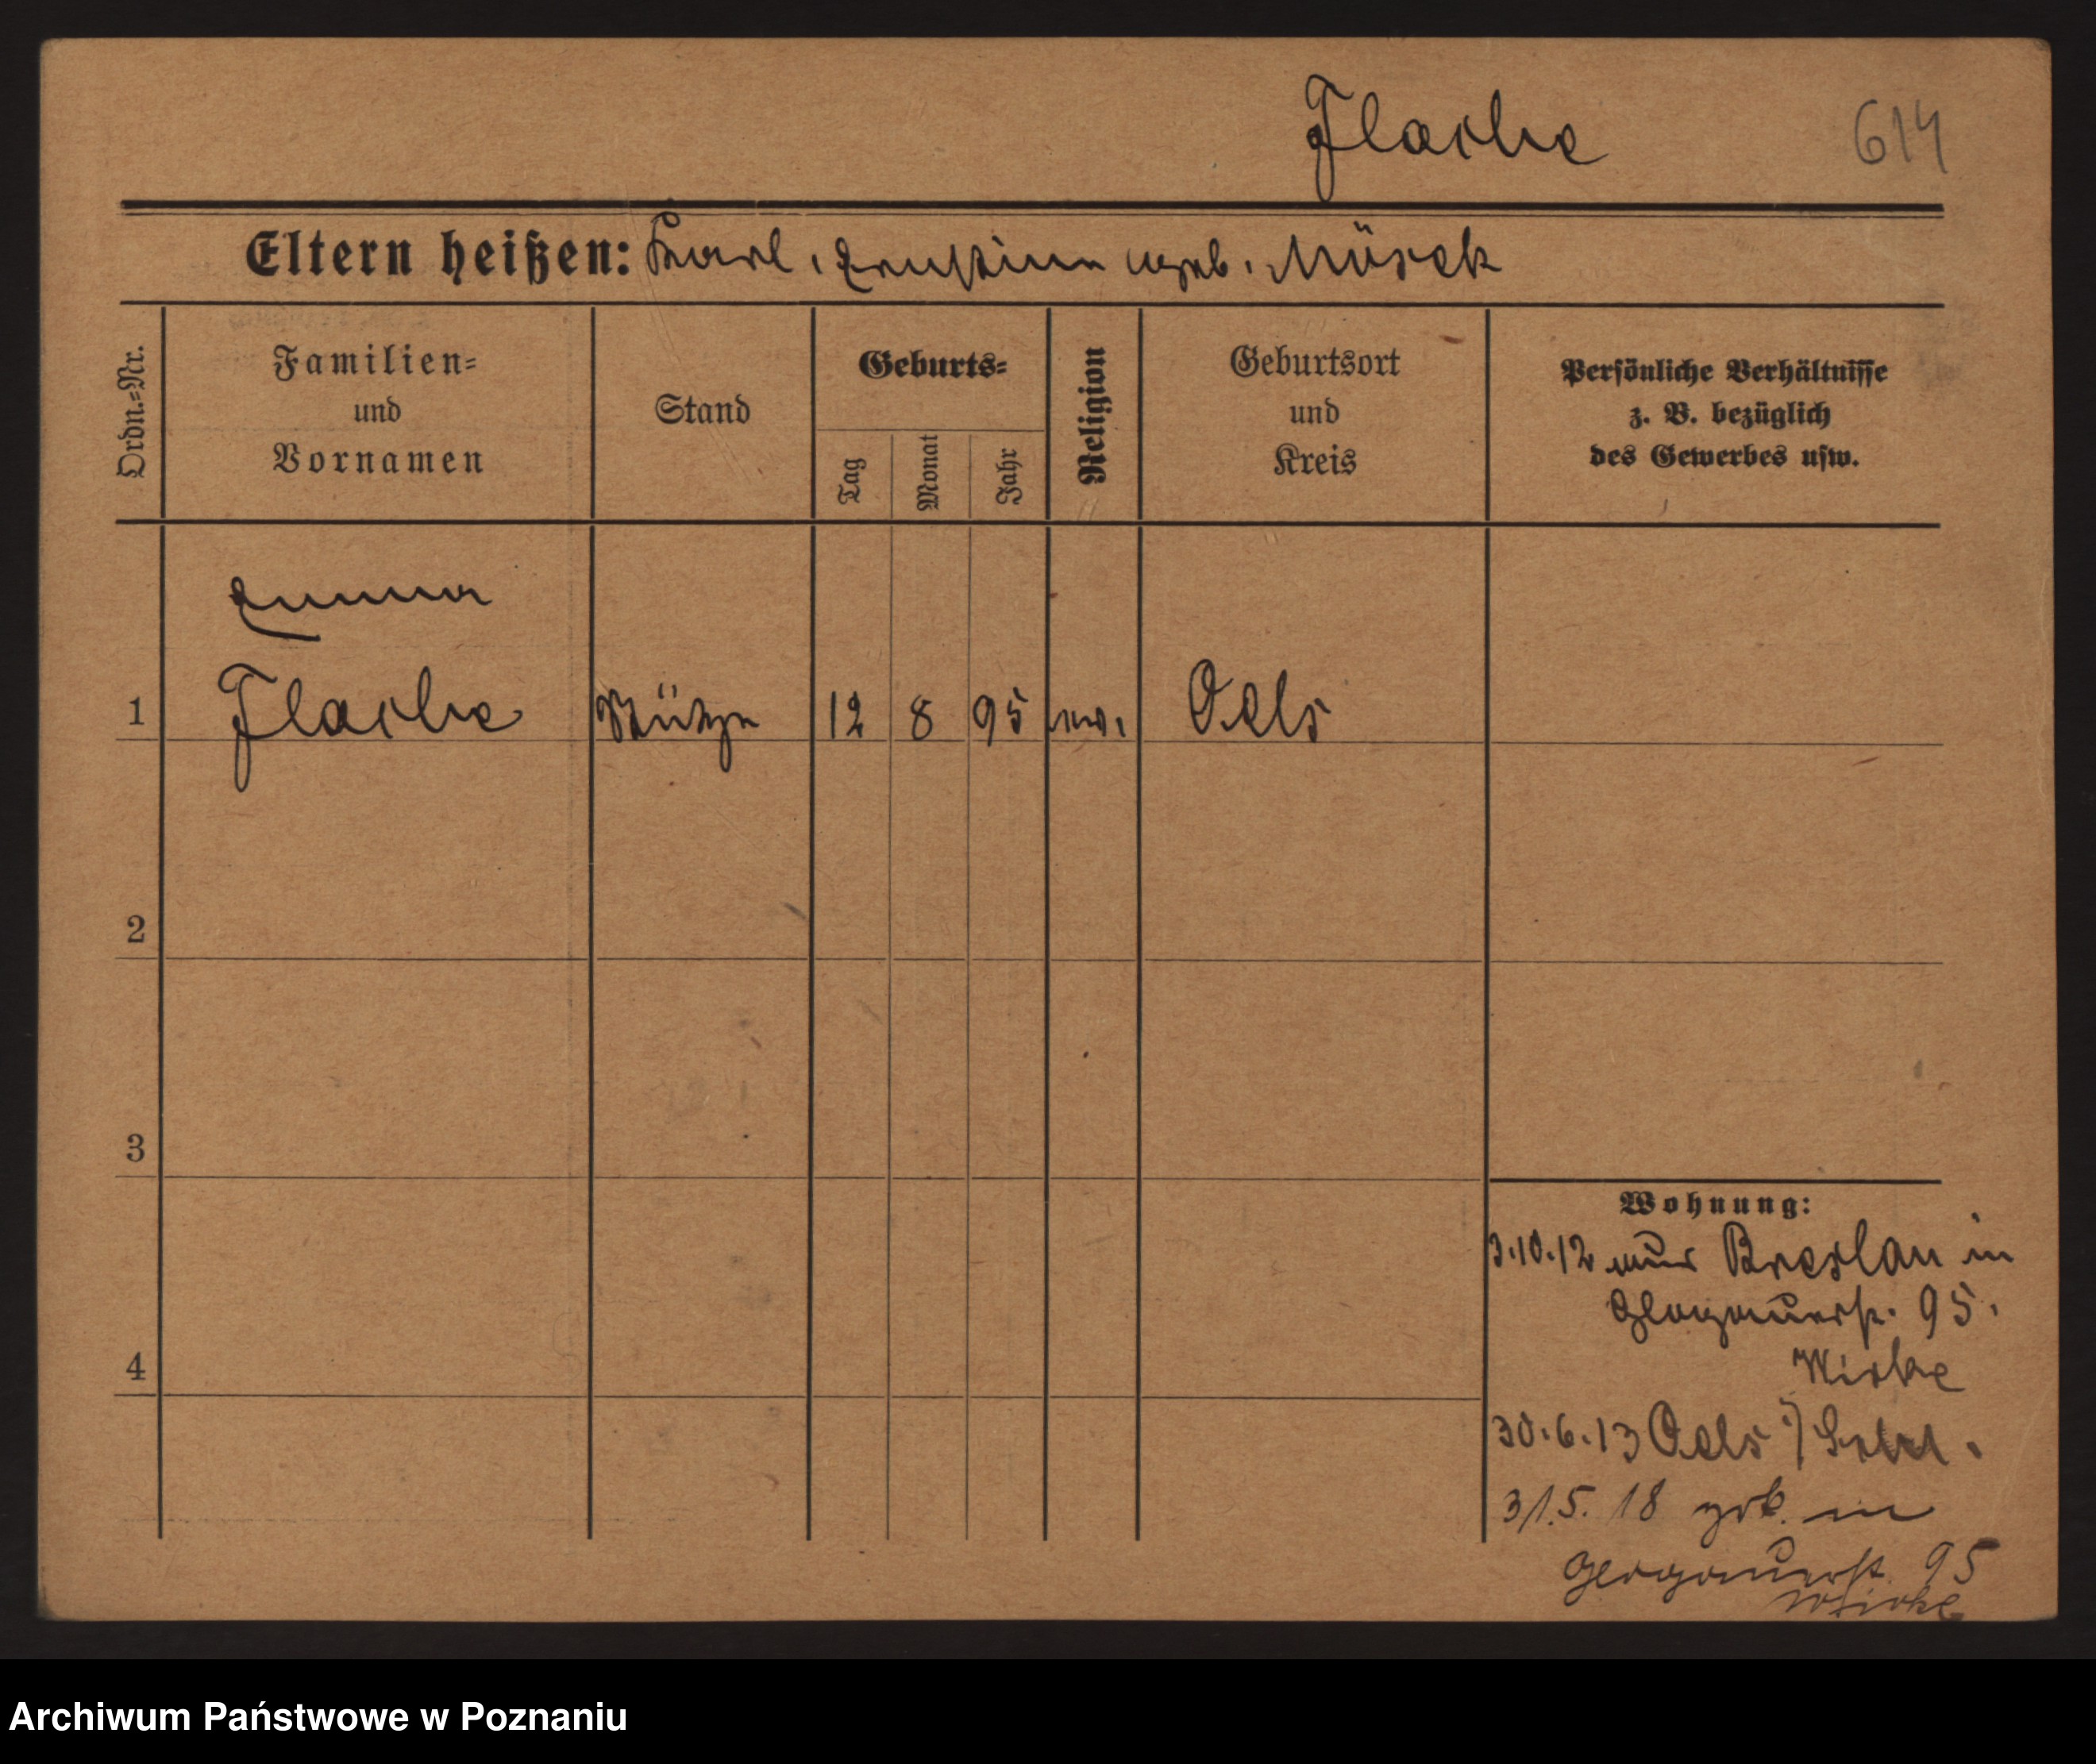 Flache 614
Eltern heißen: Karl, Ernstine geb. Müseck
Ordn.=Nr.
Familien=
und
Vornamen
Stand
Geburts=
Tag
Monat
Jahr
Religion
Geburtsort
und
Kreis
Persönliche Verhältnisse
z. B. bezüglich
des Gewerbes usw.
Emma
1 Flache Stütze 12 8 95 ev. Oels
2
3
4
Wohnung:
3.10.12 aus Breslau in
Glogauerst. 95.
30.6.13 Oels i/Schl.
31.5.18 zrk. in
Glogauerst. 95
Archiwum Państwowe w Poznaniu